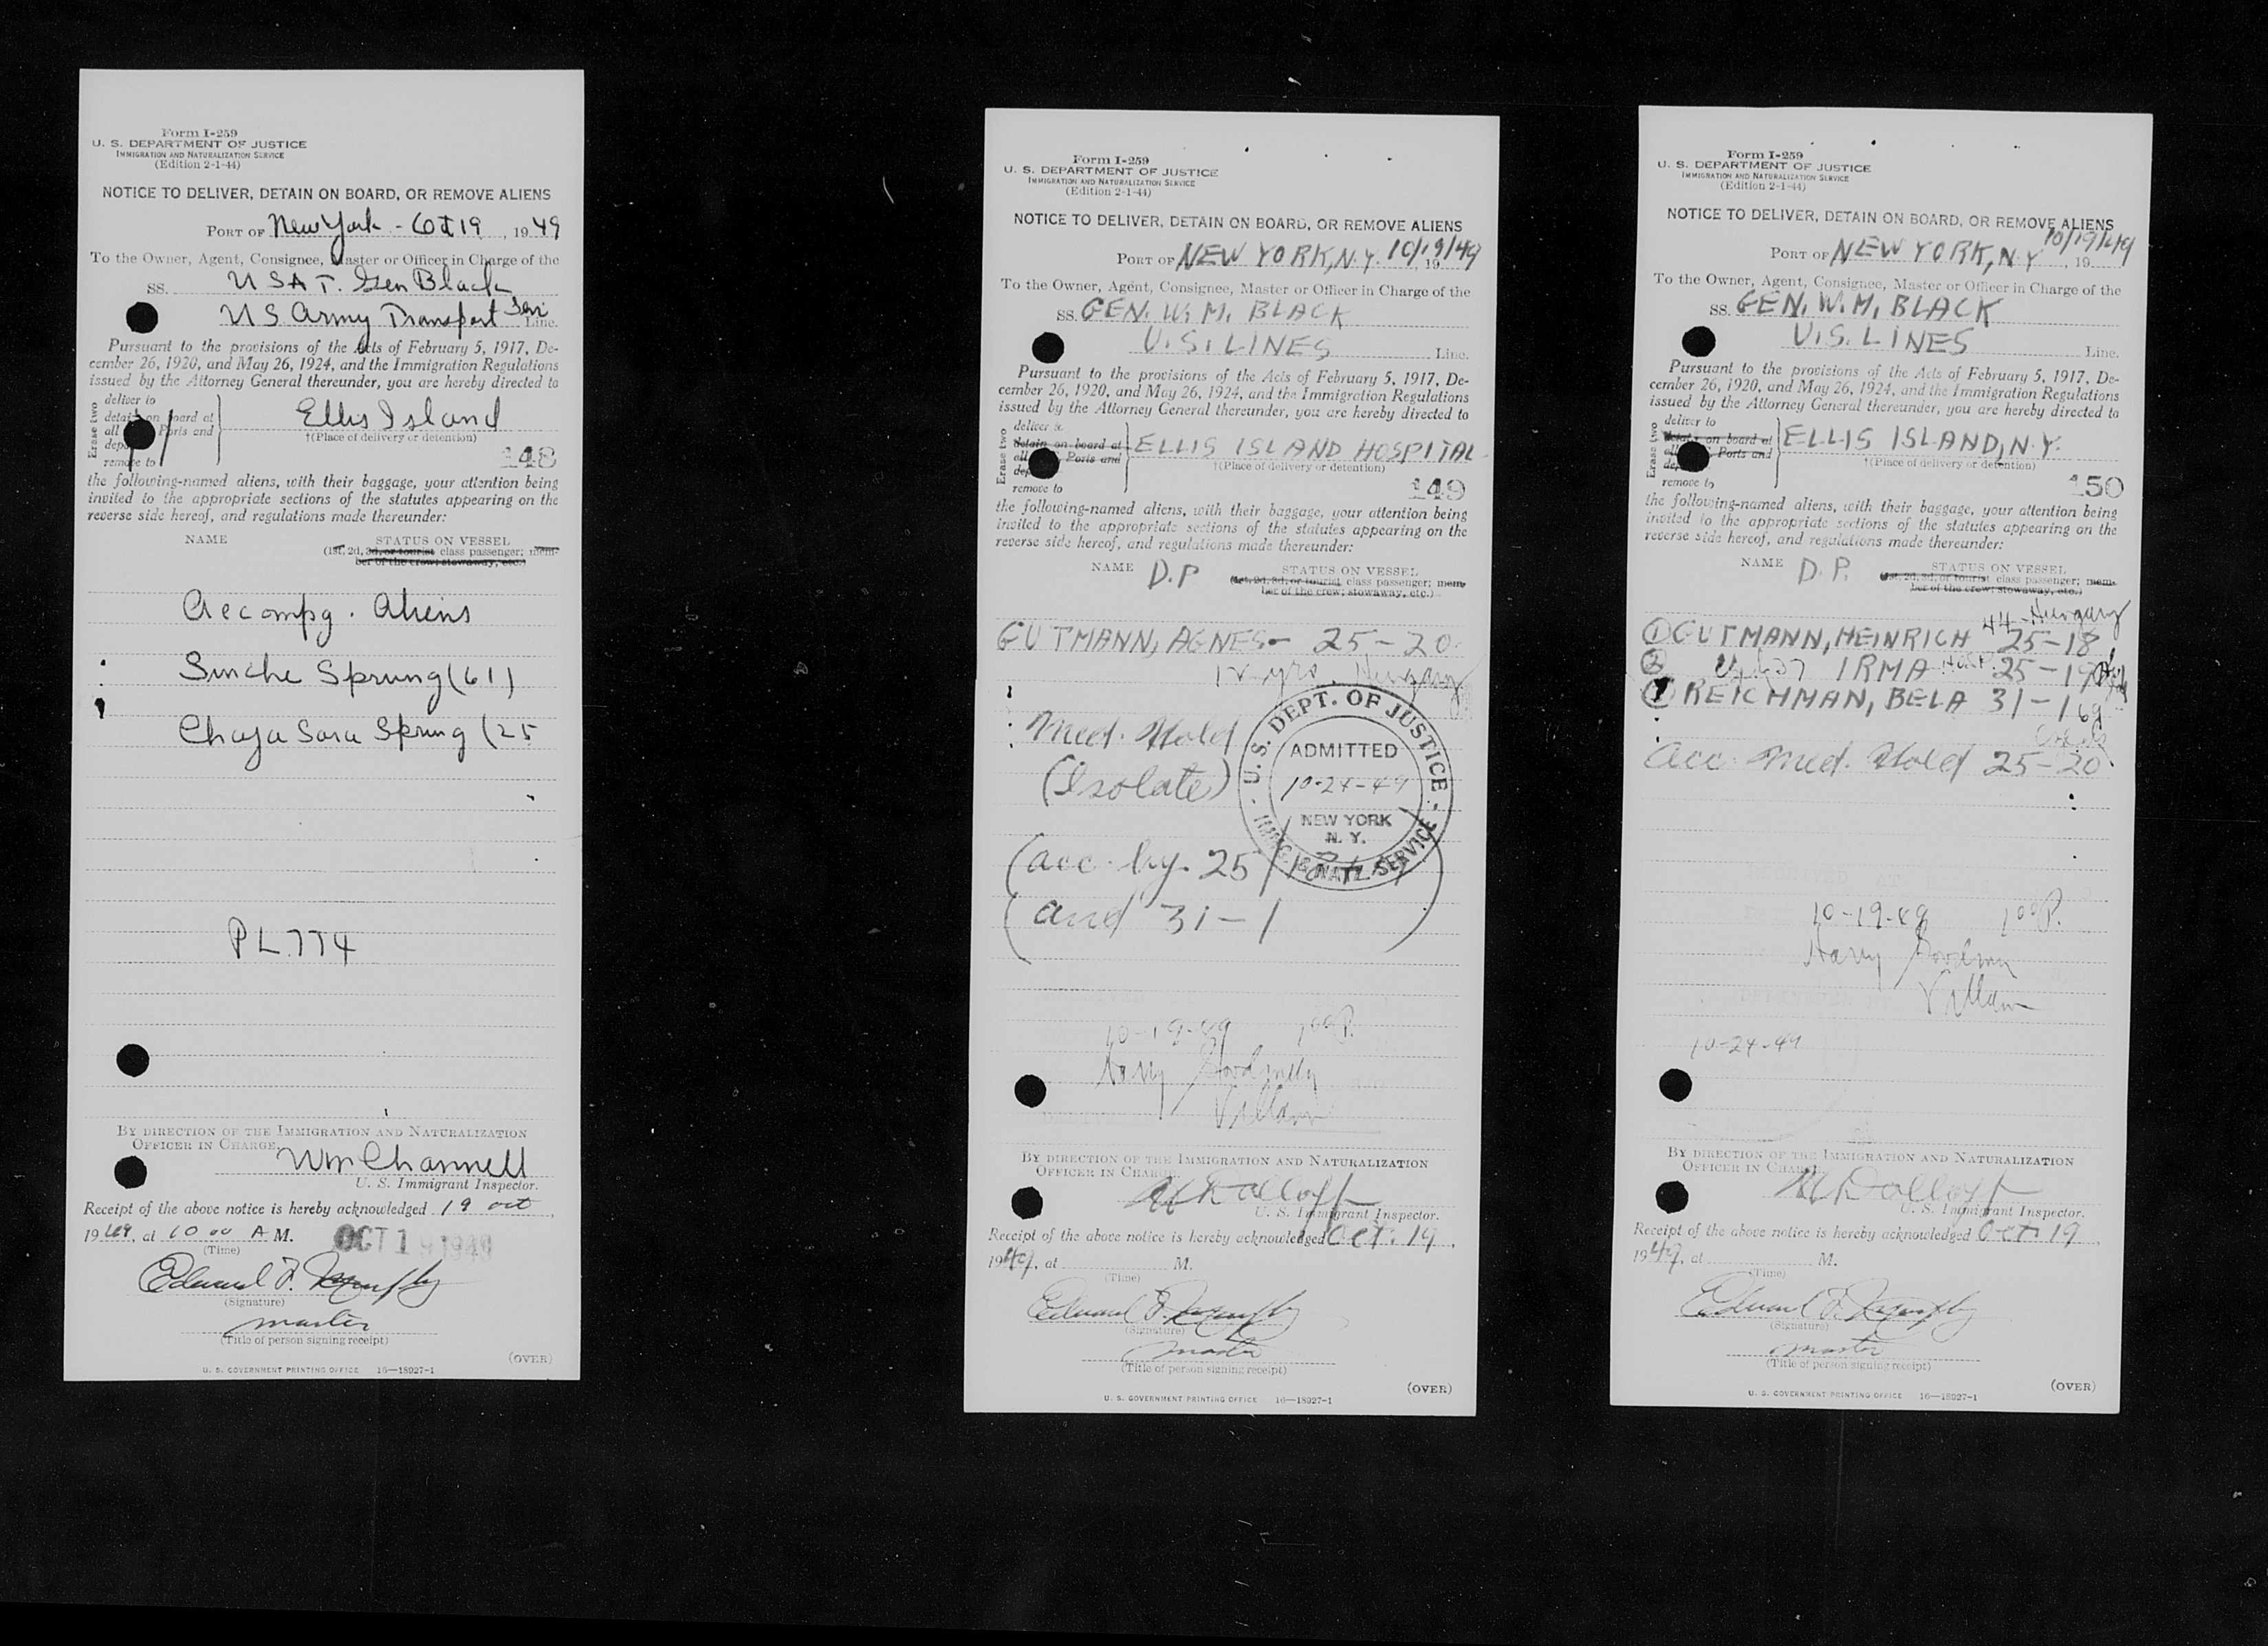 Form I-259
U. S. DEPARTMENT OF JUSTICE
IMMIGRATION AND NATURALIZATION SERVICE
(Edition 2-1-44)
NOTICE TO DELIVER, DETAIN ON BOARD, OR REMOVE ALIENS
PORT OF New York - Oct 19, 1949
To the Owner, Agent, Consignee, Master or Officer in Charge of the
SS. USAT. Gen Black
US Army Transport Serv Line.
Pursuant to the provisions of the Acts of February 5, 1917, De-
cember 26, 1920, and May 26, 1924, and the Immigration Regulations
issued by the Attorney General thereunder, you are hereby directed to
Erase two
deliver to
detain on board at
all Ports and
remove to
Ellis Island
†(Place of delivery or detention)
148
the following-named aliens, with their baggage, your attention being
invited to the appropriate sections of the statutes appearing on the
reverse side hereof, and regulations made thereunder:
NAME
STATUS ON VESSEL
(1st, 2d, 3d, or tourist class passenger; mem-
ber of the crew; stowaway, etc.)
Accompg. Aliens
Simche Sprung (61)
Chaja Sara Sprung (25
PL.774
BY DIRECTION OF THE IMMIGRATION AND NATURALIZATION
OFFICER IN CHARGE.
Wm Channell
U. S. Immigrant Inspector.
Receipt of the above notice is hereby acknowledged 19 oct,
1949, at 10 00 A M.
(Time)
OCT 19 1949
Edward F. Murphy
(Signature)
master
(Title of person signing receipt)
(OVER)
U. S. GOVERNMENT PRINTING OFFICE 16—18927-1
Form I-259
U. S. DEPARTMENT OF JUSTICE
IMMIGRATION AND NATURALIZATION SERVICE
(Edition 2-1-44)
NOTICE TO DELIVER, DETAIN ON BOARD, OR REMOVE ALIENS
PORT OF NEW YORK, N.Y. 10/19/49, 19
To the Owner, Agent, Consignee, Master or Officer in Charge of the
SS. GEN. W. M. BLACK
U.S. LINES Line.
Pursuant to the provisions of the Acts of February 5, 1917, De-
cember 26, 1920, and May 26, 1924, and the Immigration Regulations
issued by the Attorney General thereunder, you are hereby directed to
Erase two
deliver to
detain on board at
all Ports and
remove to
ELLIS ISLAND HOSPITAL
†(Place of delivery or detention)
149
the following-named aliens, with their baggage, your attention being
invited to the appropriate sections of the statutes appearing on the
reverse side hereof, and regulations made thereunder:
NAME D.P
STATUS ON VESSEL
(1st, 2d, 3d, or tourist class passenger; mem-
ber of the crew; stowaway, etc.)
GUTMANN, AGNES - 25-20
12 yrs. Hungary
Med. Hold
(Isolate)
U.S. DEPT. OF JUSTICE
ADMITTED
10-24-49
NEW YORK
N. Y.
IMMIG. & NATL. SERVICE
(acc. by. 25/18+19)
(and 31-1)
10-19-49 1 00 P.
Harry
BY DIRECTION OF THE IMMIGRATION AND NATURALIZATION
OFFICER IN CHARGE.
U. S. Immigrant Inspector.
Receipt of the above notice is hereby acknowledged Oct. 19,
1949, at M.
(Time)
Edward F. Murphy
(Signature)
master
(Title of person signing receipt)
(OVER)
U. S. GOVERNMENT PRINTING OFFICE 16—18927-1
Form I-259
U. S. DEPARTMENT OF JUSTICE
IMMIGRATION AND NATURALIZATION SERVICE
(Edition 2-1-44)
NOTICE TO DELIVER, DETAIN ON BOARD, OR REMOVE ALIENS
PORT OF NEW YORK, N.Y 10/19/49, 19
To the Owner, Agent, Consignee, Master or Officer in Charge of the
SS. GEN. W. M. BLACK
U.S. LINES Line.
Pursuant to the provisions of the Acts of February 5, 1917, De-
cember 26, 1920, and May 26, 1924, and the Immigration Regulations
issued by the Attorney General thereunder, you are hereby directed to
Erase two
deliver to
detain on board at
all Ports and
remove to
ELLIS ISLAND, N.Y.
†(Place of delivery or detention)
150
the following-named aliens, with their baggage, your attention being
invited to the appropriate sections of the statutes appearing on the
reverse side hereof, and regulations made thereunder:
NAME D.P.
STATUS ON VESSEL
(1st, 2d, 3d, or tourist class passenger; mem-
ber of the crew; stowaway, etc.)
44-Hungary
① GUTMANN, HEINRICH 25-18
② IRMA 25-19
REICHMAN, BELA 31-1
Acc. Med. Hold 25-20
10-19-49 1 00 P.
Harry
10-24-49
BY DIRECTION OF THE IMMIGRATION AND NATURALIZATION
OFFICER IN CHARGE.
U. S. Immigrant Inspector.
Receipt of the above notice is hereby acknowledged Oct. 19,
1949, at M.
(Time)
Edward F. Murphy
(Signature)
master
(Title of person signing receipt)
(OVER)
U. S. GOVERNMENT PRINTING OFFICE 16—18927-1